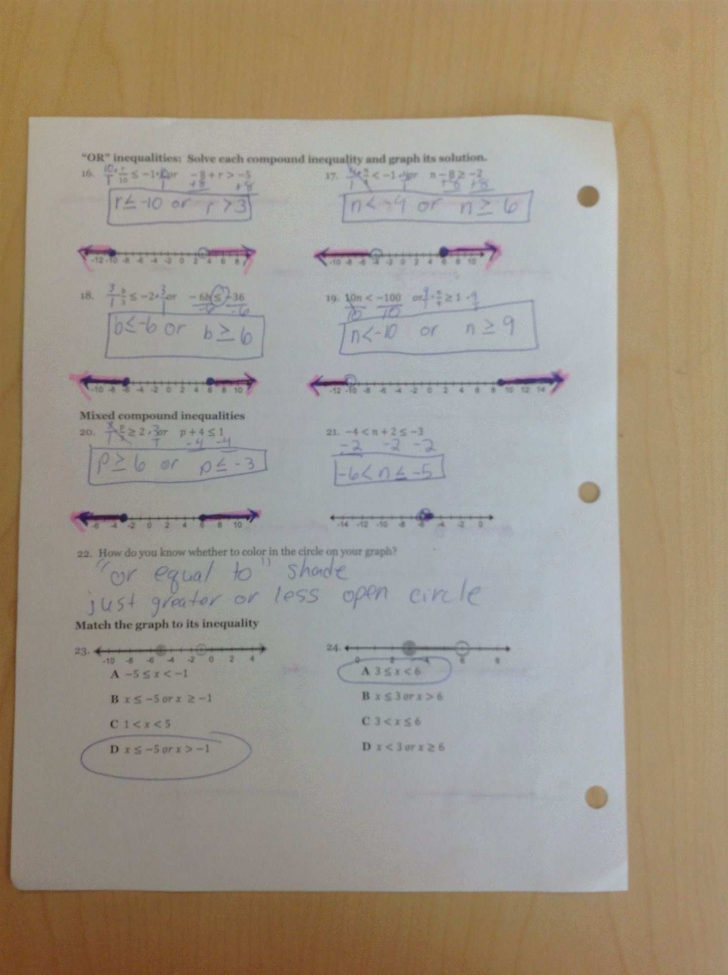 "OR" inequalities: Solve each compound inequality and graph its solution.
16. 10/1 · r/10 ≤ -1 · 10/1 or -8 + r > -5
+8 +8
r ≤ -10 or r > 3
-12 -10 -8 -6 -4 -2 0 2 4 6 8
17. n/4 < -1 · 4/1 or n - 8 ≥ -2
+8 +8
n < -4 or n ≥ 6
-10 -8 -6 -4 -2 0 2 4 6 8 10
18. 3/1 · b/3 ≤ -2 · 3/1 or -6b ≤ -36
-6 -6
b ≤ -6 or b ≥ 6
-10 -8 -6 -4 -2 0 2 4 6 8 10
19. 10n < -100 or 9/1 · n/9 ≥ 1 · 9/1
10 10
n < -10 or n ≥ 9
-12 -10 -8 -6 -4 -2 0 2 4 6 8 10 12 14
Mixed compound inequalities
20. ≥ 2 · 3/1 or p + 4 ≤ 1
-4 -4
p ≥ 6 or p ≤ -3
-6 -4 -2 0 2 4 6 8 10
21. -4 < n + 2 ≤ -3
-2 -2 -2
-6 < n ≤ -5
-14 -12 -10 -8 -6 -4 -2 0
22. How do you know whether to color in the circle on your graph?
"or equal to" shade
just greater or less open circle
Match the graph to its inequality
23.
-10 -8 -6 -4 -2 0 2 4
A -5 ≤ x < -1
B x ≤ -5 or x ≥ -1
C 1 < x < 5
D x ≤ -5 or x > -1
24.
0 2 4 6 8
A 3 ≤ x < 6
B x ≤ 3 or x > 6
C 3 < x ≤ 6
D x < 3 or x ≥ 6